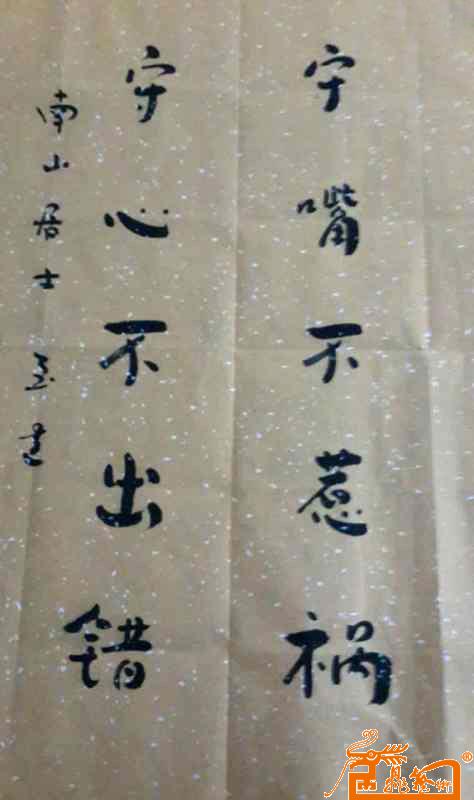 守嘴不惹祸
守心不出错
南山居士
书